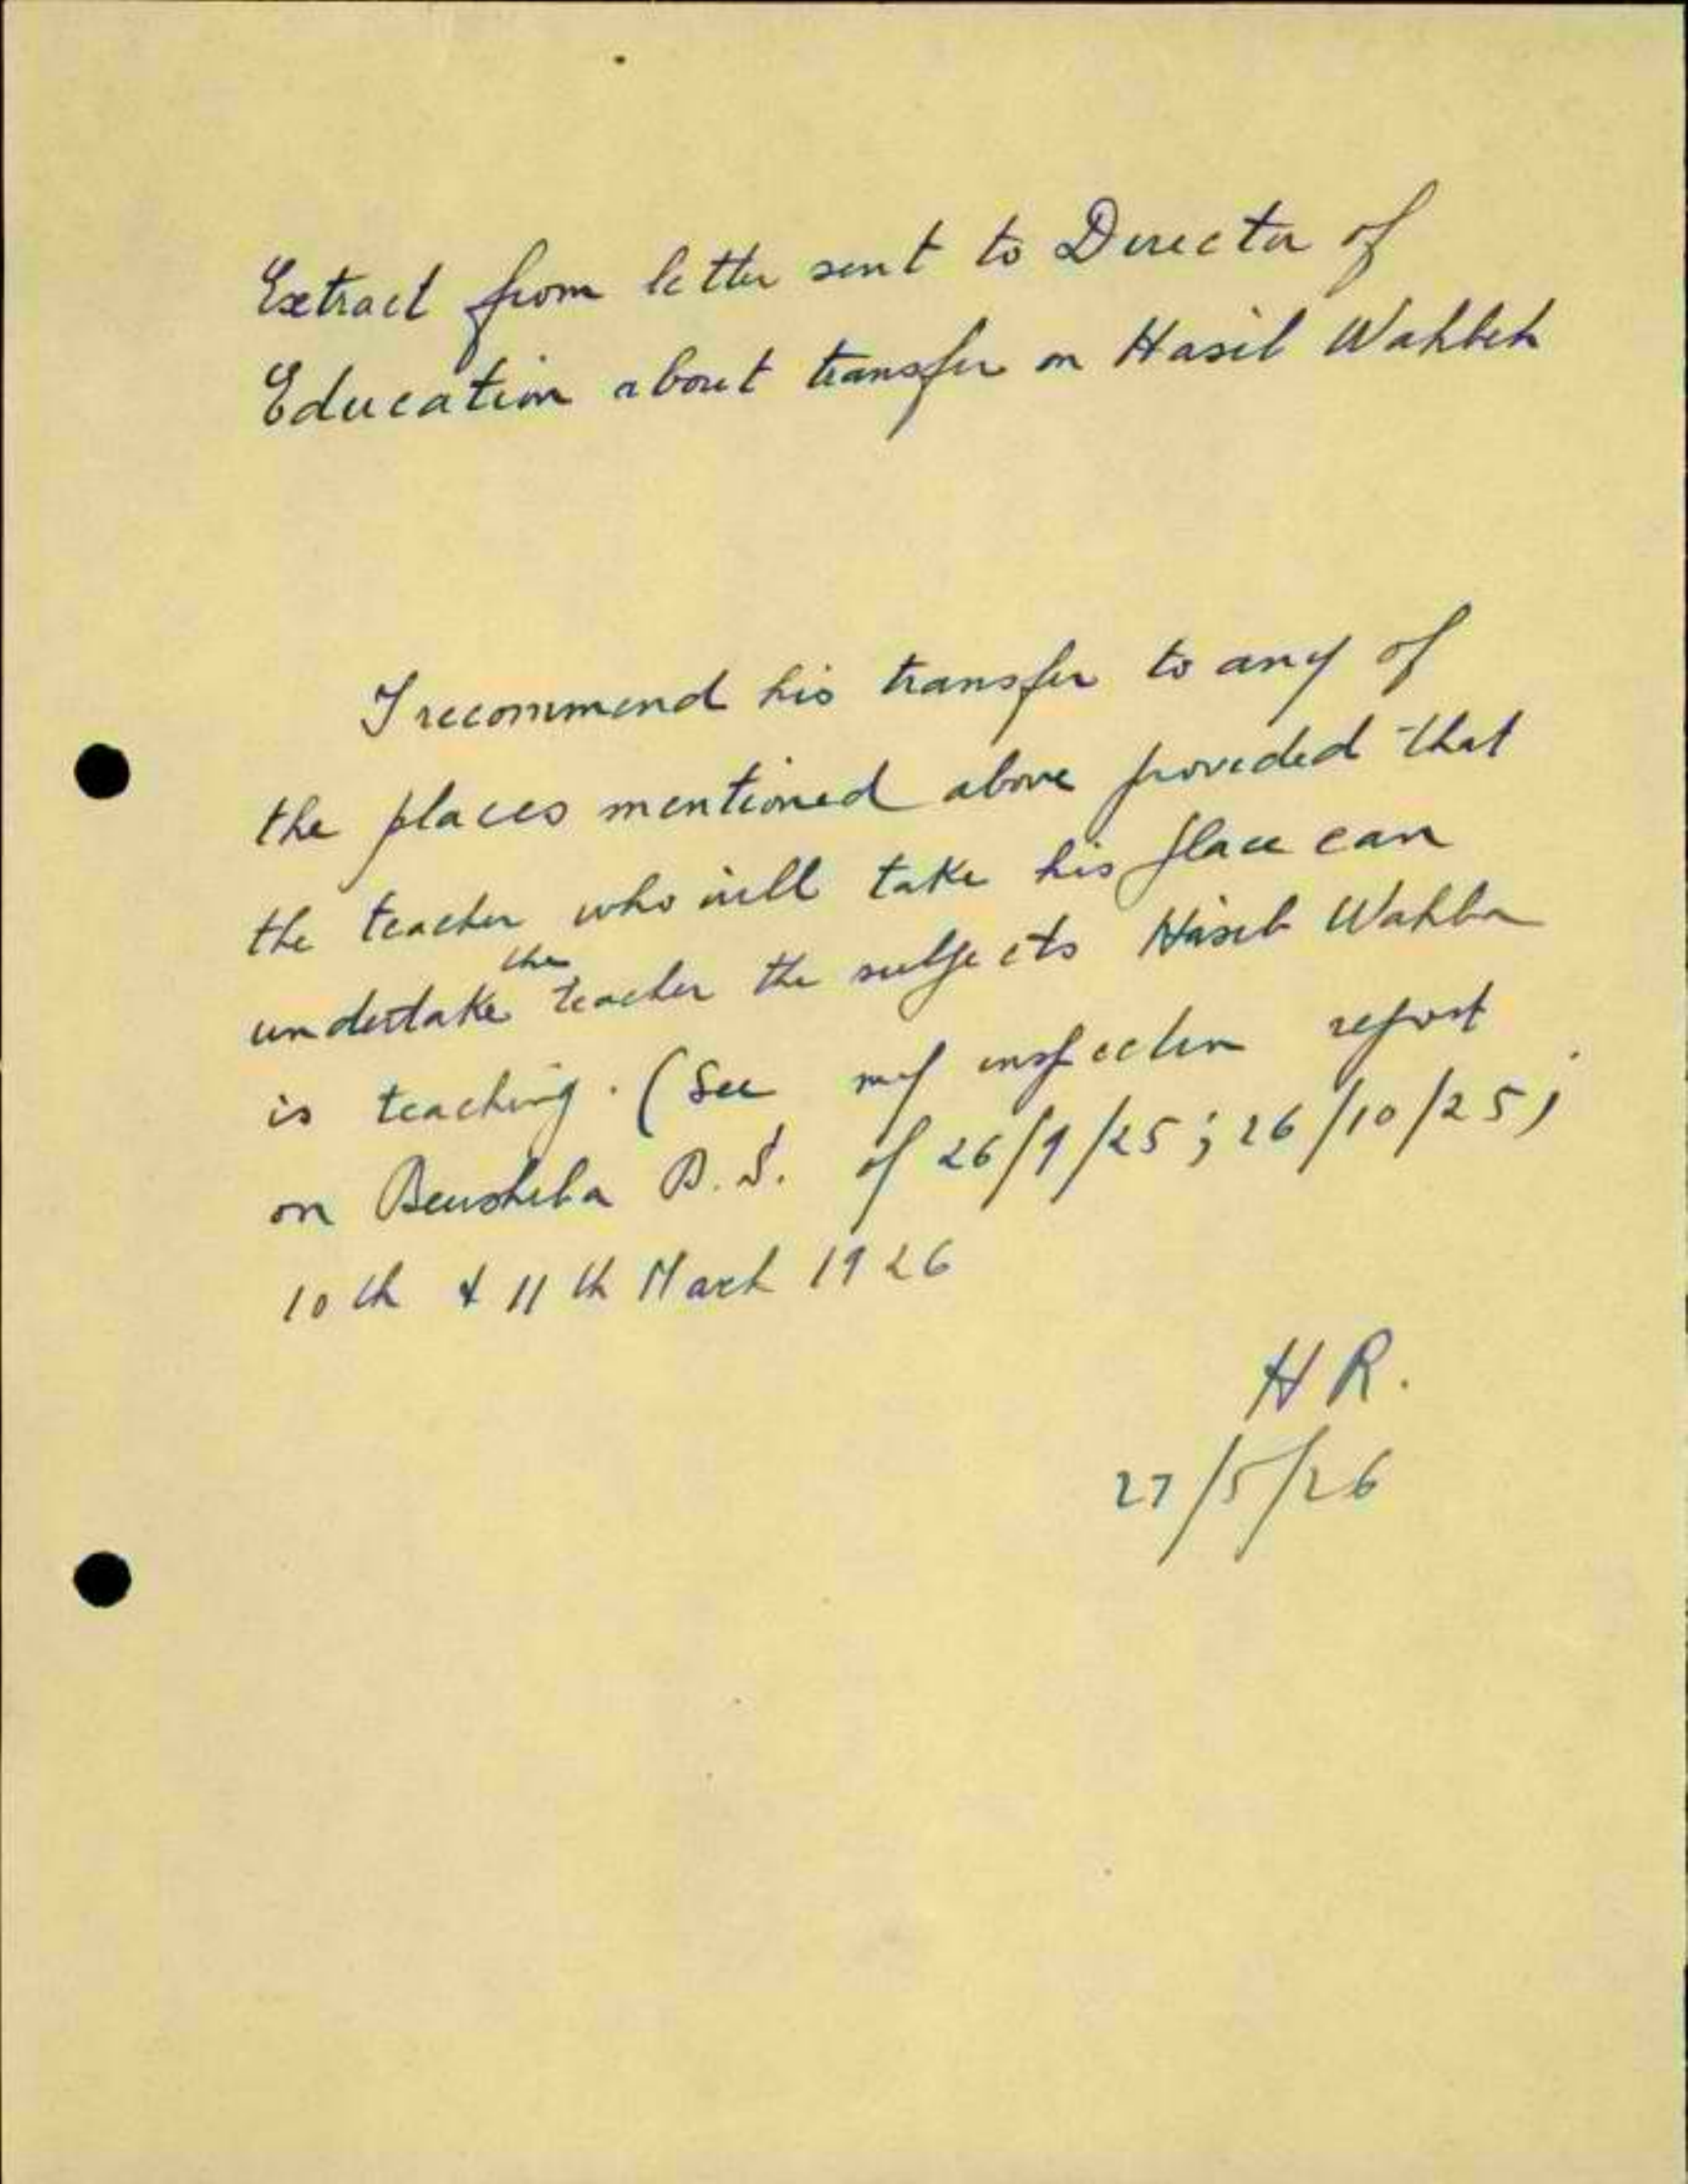 Extract from letter sent to Director of
Education about transfer on Hasib Wahbeh
I recommend his transfer to any of
the places mentioned above provided that
the teacher who will take his place can
the
undertake teacher the subjects Hasib Wahba
is teaching. (See my inspection report
on Beersheba B.S. of 26/9/25; 26/10/25;
10th & 11th March 1926
HR.
27/5/26